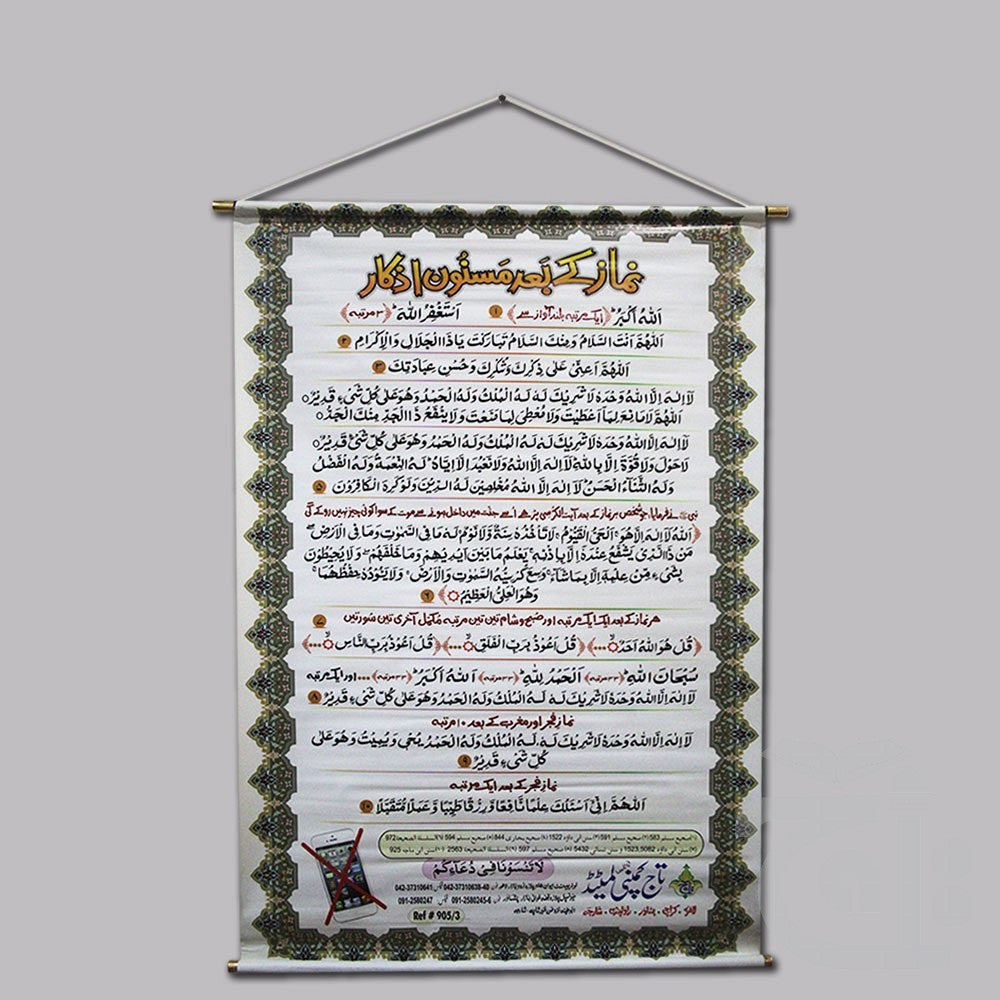 نماز کے بعد مسنون اذکار
اَللّٰهُ اَكْبَرُ ﴿ایک مرتبہ بلند آواز سے﴾ ۱ اَسْتَغْفِرُ اللّٰهَ ﴿۳ مرتبہ﴾
اَللّٰهُمَّ اَنْتَ السَّلَامُ وَمِنْكَ السَّلَامُ تَبَارَكْتَ يَا ذَا الْجَلَالِ وَالْاِكْرَامِ ۲
اَللّٰهُمَّ اَعِنِّيْ عَلٰى ذِكْرِكَ وَشُكْرِكَ وَحُسْنِ عِبَادَتِكَ ۳
لَآ اِلٰهَ اِلَّا اللّٰهُ وَحْدَهٗ لَا شَرِيْكَ لَهٗ لَهُ الْمُلْكُ وَلَهُ الْحَمْدُ وَهُوَ عَلٰى كُلِّ شَيْءٍ قَدِيْرٌ
اَللّٰهُمَّ لَا مَانِعَ لِمَا اَعْطَيْتَ وَلَا مُعْطِيَ لِمَا مَنَعْتَ وَلَا يَنْفَعُ ذَا الْجَدِّ مِنْكَ الْجَدُّ
لَآ اِلٰهَ اِلَّا اللّٰهُ وَحْدَهٗ لَا شَرِيْكَ لَهٗ لَهُ الْمُلْكُ وَلَهُ الْحَمْدُ وَهُوَ عَلٰى كُلِّ شَيْءٍ قَدِيْرٌ
لَا حَوْلَ وَلَا قُوَّةَ اِلَّا بِاللّٰهِ لَآ اِلٰهَ اِلَّا اللّٰهُ وَلَا نَعْبُدُ اِلَّا اِيَّاهُ لَهُ النِّعْمَةُ وَلَهُ الْفَضْلُ
وَلَهُ الثَّنَآءُ الْحَسَنُ لَآ اِلٰهَ اِلَّا اللّٰهُ مُخْلِصِيْنَ لَهُ الدِّيْنَ وَلَوْ كَرِهَ الْكَافِرُوْنَ ۵
نبی ﷺ نے فرمایا، جو شخص ہر نماز کے بعد آیت الکرسی پڑھے اُسے جنت میں داخل ہونے سے موت کے سوا کوئی چیز نہیں روکے گی
﴿اَللّٰهُ لَآ اِلٰهَ اِلَّا هُوَ اَلْحَيُّ الْقَيُّوْمُ لَا تَاْخُذُهٗ سِنَةٌ وَّلَا نَوْمٌ لَهٗ مَا فِي السَّمٰوٰتِ وَمَا فِي الْاَرْضِ
مَنْ ذَا الَّذِيْ يَشْفَعُ عِنْدَهٗٓ اِلَّا بِاِذْنِهٖ يَعْلَمُ مَا بَيْنَ اَيْدِيْهِمْ وَمَا خَلْفَهُمْ وَلَا يُحِيْطُوْنَ
بِشَيْءٍ مِّنْ عِلْمِهٖٓ اِلَّا بِمَا شَآءَ وَسِعَ كُرْسِيُّهُ السَّمٰوٰتِ وَالْاَرْضَ وَلَا يَـُٔوْدُهٗ حِفْظُهُمَا
وَهُوَ الْعَلِيُّ الْعَظِيْمُ﴾ ۶
ہر نماز کے بعد ایک ایک مرتبہ اور صبح و شام تین تین مرتبہ مکمل آخری تین سورتیں ۷
﴿قُلْ هُوَ اللّٰهُ اَحَدٌ...﴾ ﴿قُلْ اَعُوْذُ بِرَبِّ الْفَلَقِ...﴾ ﴿قُلْ اَعُوْذُ بِرَبِّ النَّاسِ...﴾
سُبْحَانَ اللّٰهِ ﴿۳۳ مرتبہ﴾ اَلْحَمْدُ لِلّٰهِ ﴿۳۳ مرتبہ﴾ اَللّٰهُ اَكْبَرُ ﴿۳۳ مرتبہ﴾ ... اور ایک مرتبہ
لَآ اِلٰهَ اِلَّا اللّٰهُ وَحْدَهٗ لَا شَرِيْكَ لَهٗ لَهُ الْمُلْكُ وَلَهُ الْحَمْدُ وَهُوَ عَلٰى كُلِّ شَيْءٍ قَدِيْرٌ ۸
نماز فجر اور مغرب کے بعد ۱۰ مرتبہ
لَآ اِلٰهَ اِلَّا اللّٰهُ وَحْدَهٗ لَا شَرِيْكَ لَهٗ لَهُ الْمُلْكُ وَلَهُ الْحَمْدُ يُحْيٖ وَيُمِيْتُ وَهُوَ عَلٰى
كُلِّ شَيْءٍ قَدِيْرٌ ۹
نماز فجر کے بعد ایک مرتبہ
اَللّٰهُمَّ اِنِّيْ اَسْئَلُكَ عِلْمًا نَّافِعًا وَّرِزْقًا طَيِّبًا وَّعَمَلًا مُّتَقَبَّلًا ۱۰
صحیح مسلم 583 صحیح مسلم 591 سنن ابی داؤد 1522 صحیح بخاری 844 صحیح مسلم 594 السلسلة الصحيحة 972
سنن ابی داؤد 1523,5082 سنن نسائی 5432 صحیح مسلم 597 السلسلة الصحيحة 2563 سنن ابن ماجہ 925
لَا تَنْسَوْنَا فِيْ دُعَآءِكُمْ
تاج کمپنی لمیٹڈ
042-37310641 042-37310638-40
091-2580247 091-2580245-6
لاہور، کراچی، پشاور، راولپنڈی
Ref # 905/3